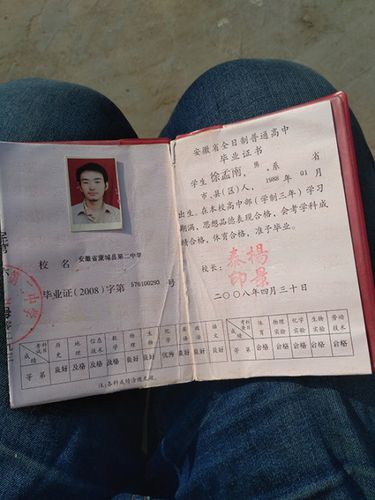 校 名 安徽省蒙城县第二中学
毕业证(2008)字第 576100293 号
考试科目 历史 地理 信息技术 数学 物理 生物 化学 英语 政治 语文
成绩 等第 良好 及格 及格 及格 良好 良好 优秀 良好 良好 良好
注:各科成绩涂改无效。
安徽省全日制普通高中
毕业证书
学生 徐孟南,男,系 省
市、县(区)人,1988 年 01 月
出生。在本校高中部(学制三年)学习
期满,思想品德表现合格,会考学科成
绩合格,体育合格,准予毕业。
校长:
二〇〇八年四月三十日
考查科目 体育 物理实验 化学实验 生物实验 劳动技术
成绩 等第 合格 合格 合格 合格 合格